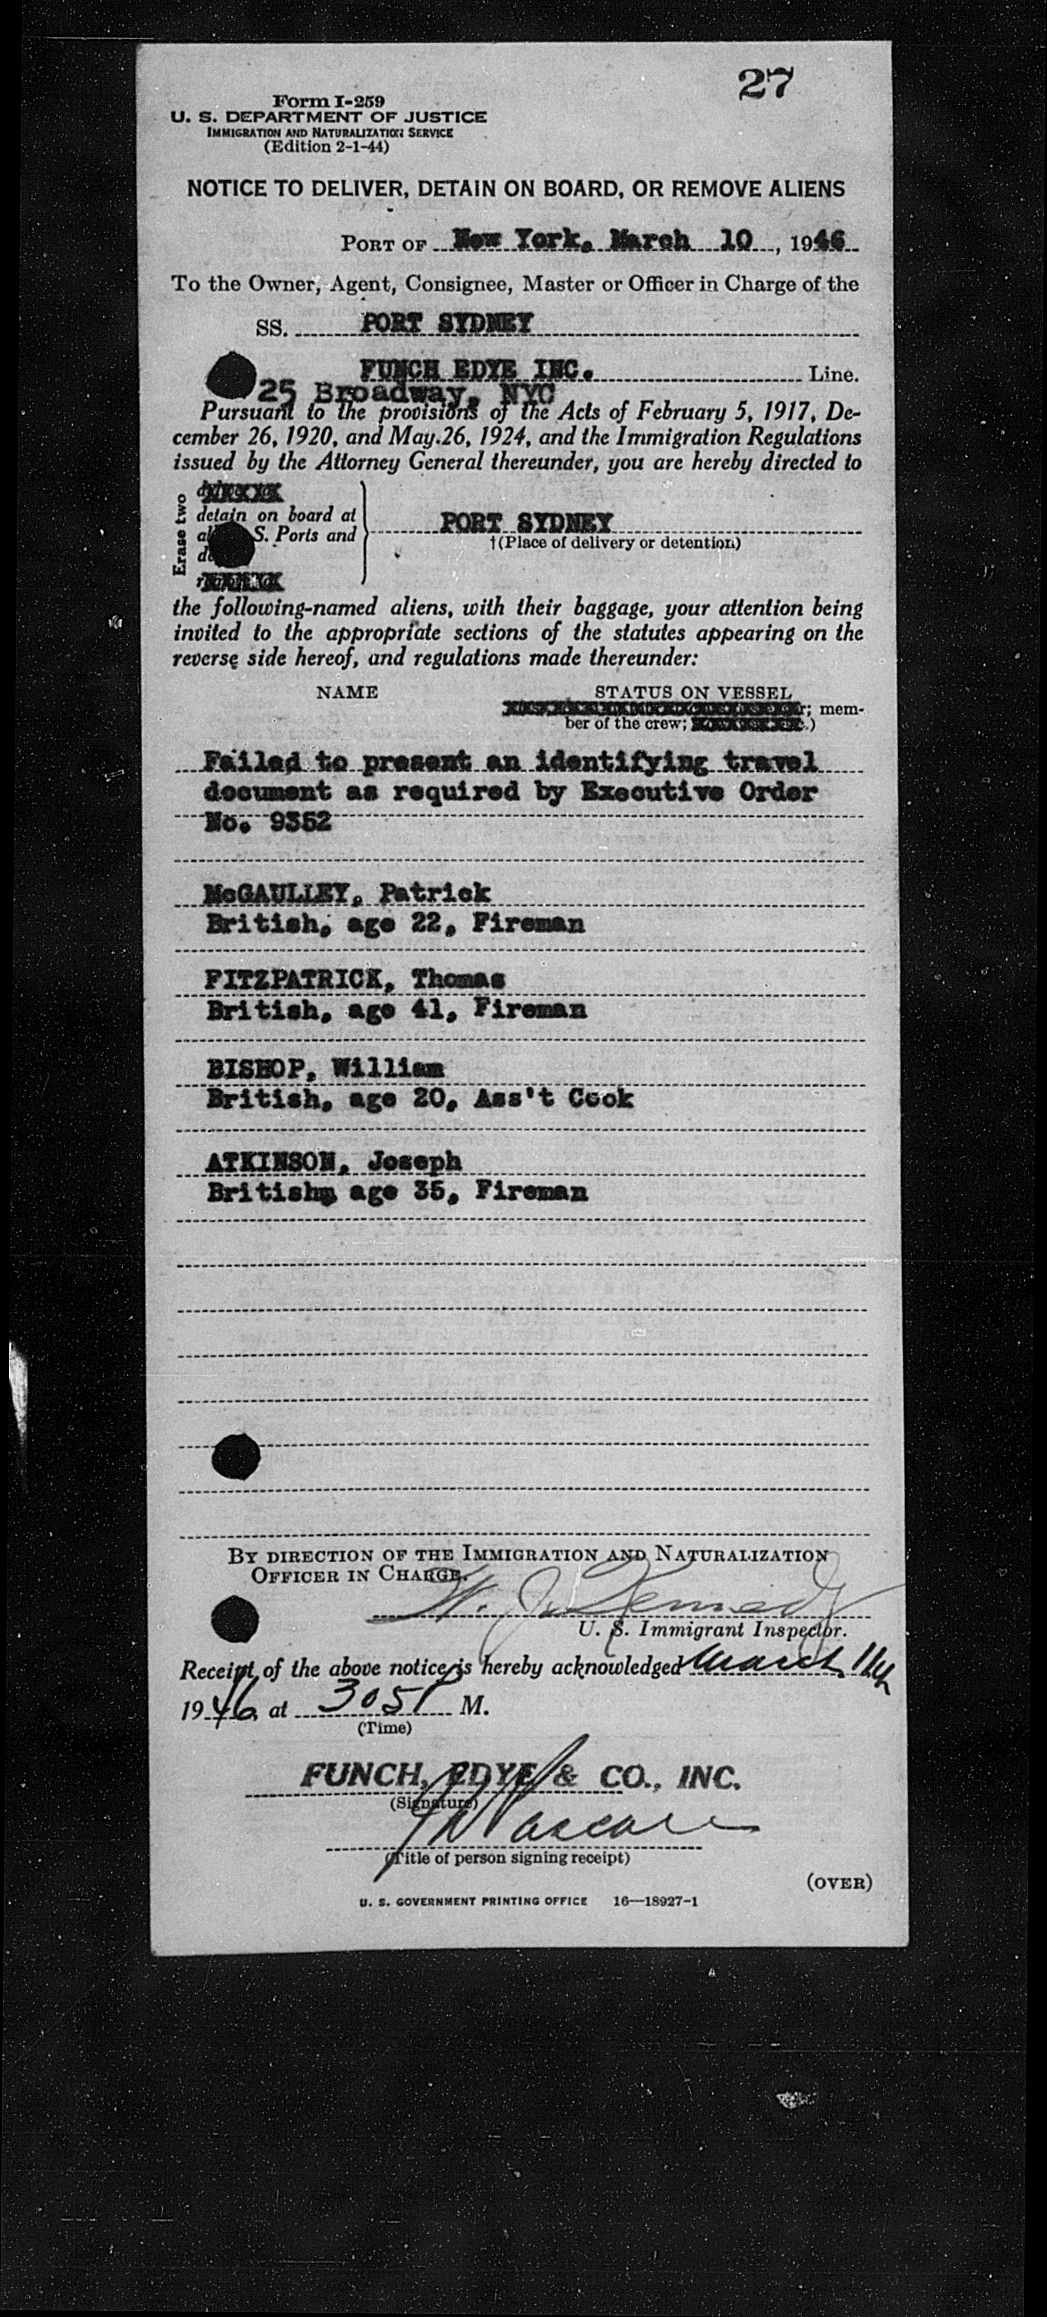 27
Form I-259
U. S. DEPARTMENT OF JUSTICE
IMMIGRATION AND NATURALIZATION SERVICE
(Edition 2-1-44)
NOTICE TO DELIVER, DETAIN ON BOARD, OR REMOVE ALIENS
PORT OF New York, March 10, 1946
To the Owner, Agent, Consignee, Master or Officer in Charge of the
SS. PORT SYDNEY
FUNCH EDYE INC. Line.
25 Broadway, NYC
Pursuant to the provisions of the Acts of February 5, 1917, De-
cember 26, 1920, and May 26, 1924, and the Immigration Regulations
issued by the Attorney General thereunder, you are hereby directed to
Erase two
detain on board at
S. Ports and
PORT SYDNEY
†(Place of delivery or detention)
the following-named aliens, with their baggage, your attention being
invited to the appropriate sections of the statutes appearing on the
reverse side hereof, and regulations made thereunder:
NAME STATUS ON VESSEL
mem-
ber of the crew; )
Failed to present an identifying travel
document as required by Executive Order
No. 9352
McGAULLEY, Patrick
British, age 22, Fireman
FITZPATRICK, Thomas
British, age 41, Fireman
BISHOP, William
British, age 20, Ass't Cook
ATKINSON, Joseph
British, age 35, Fireman
BY DIRECTION OF THE IMMIGRATION AND NATURALIZATION
OFFICER IN CHARGE.
W. J. Kennedy
U. S. Immigrant Inspector.
Receipt of the above notice is hereby acknowledged March 11th
1946 at 305 P M.
(Time)
FUNCH, EDYE & CO., INC.
(Signature)
(Title of person signing receipt)
(OVER)
U. S. GOVERNMENT PRINTING OFFICE 16—18927-1